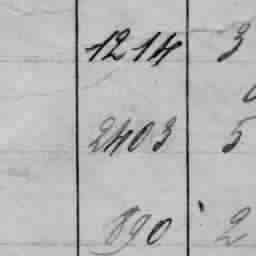 1214 3
2403 5
890 2